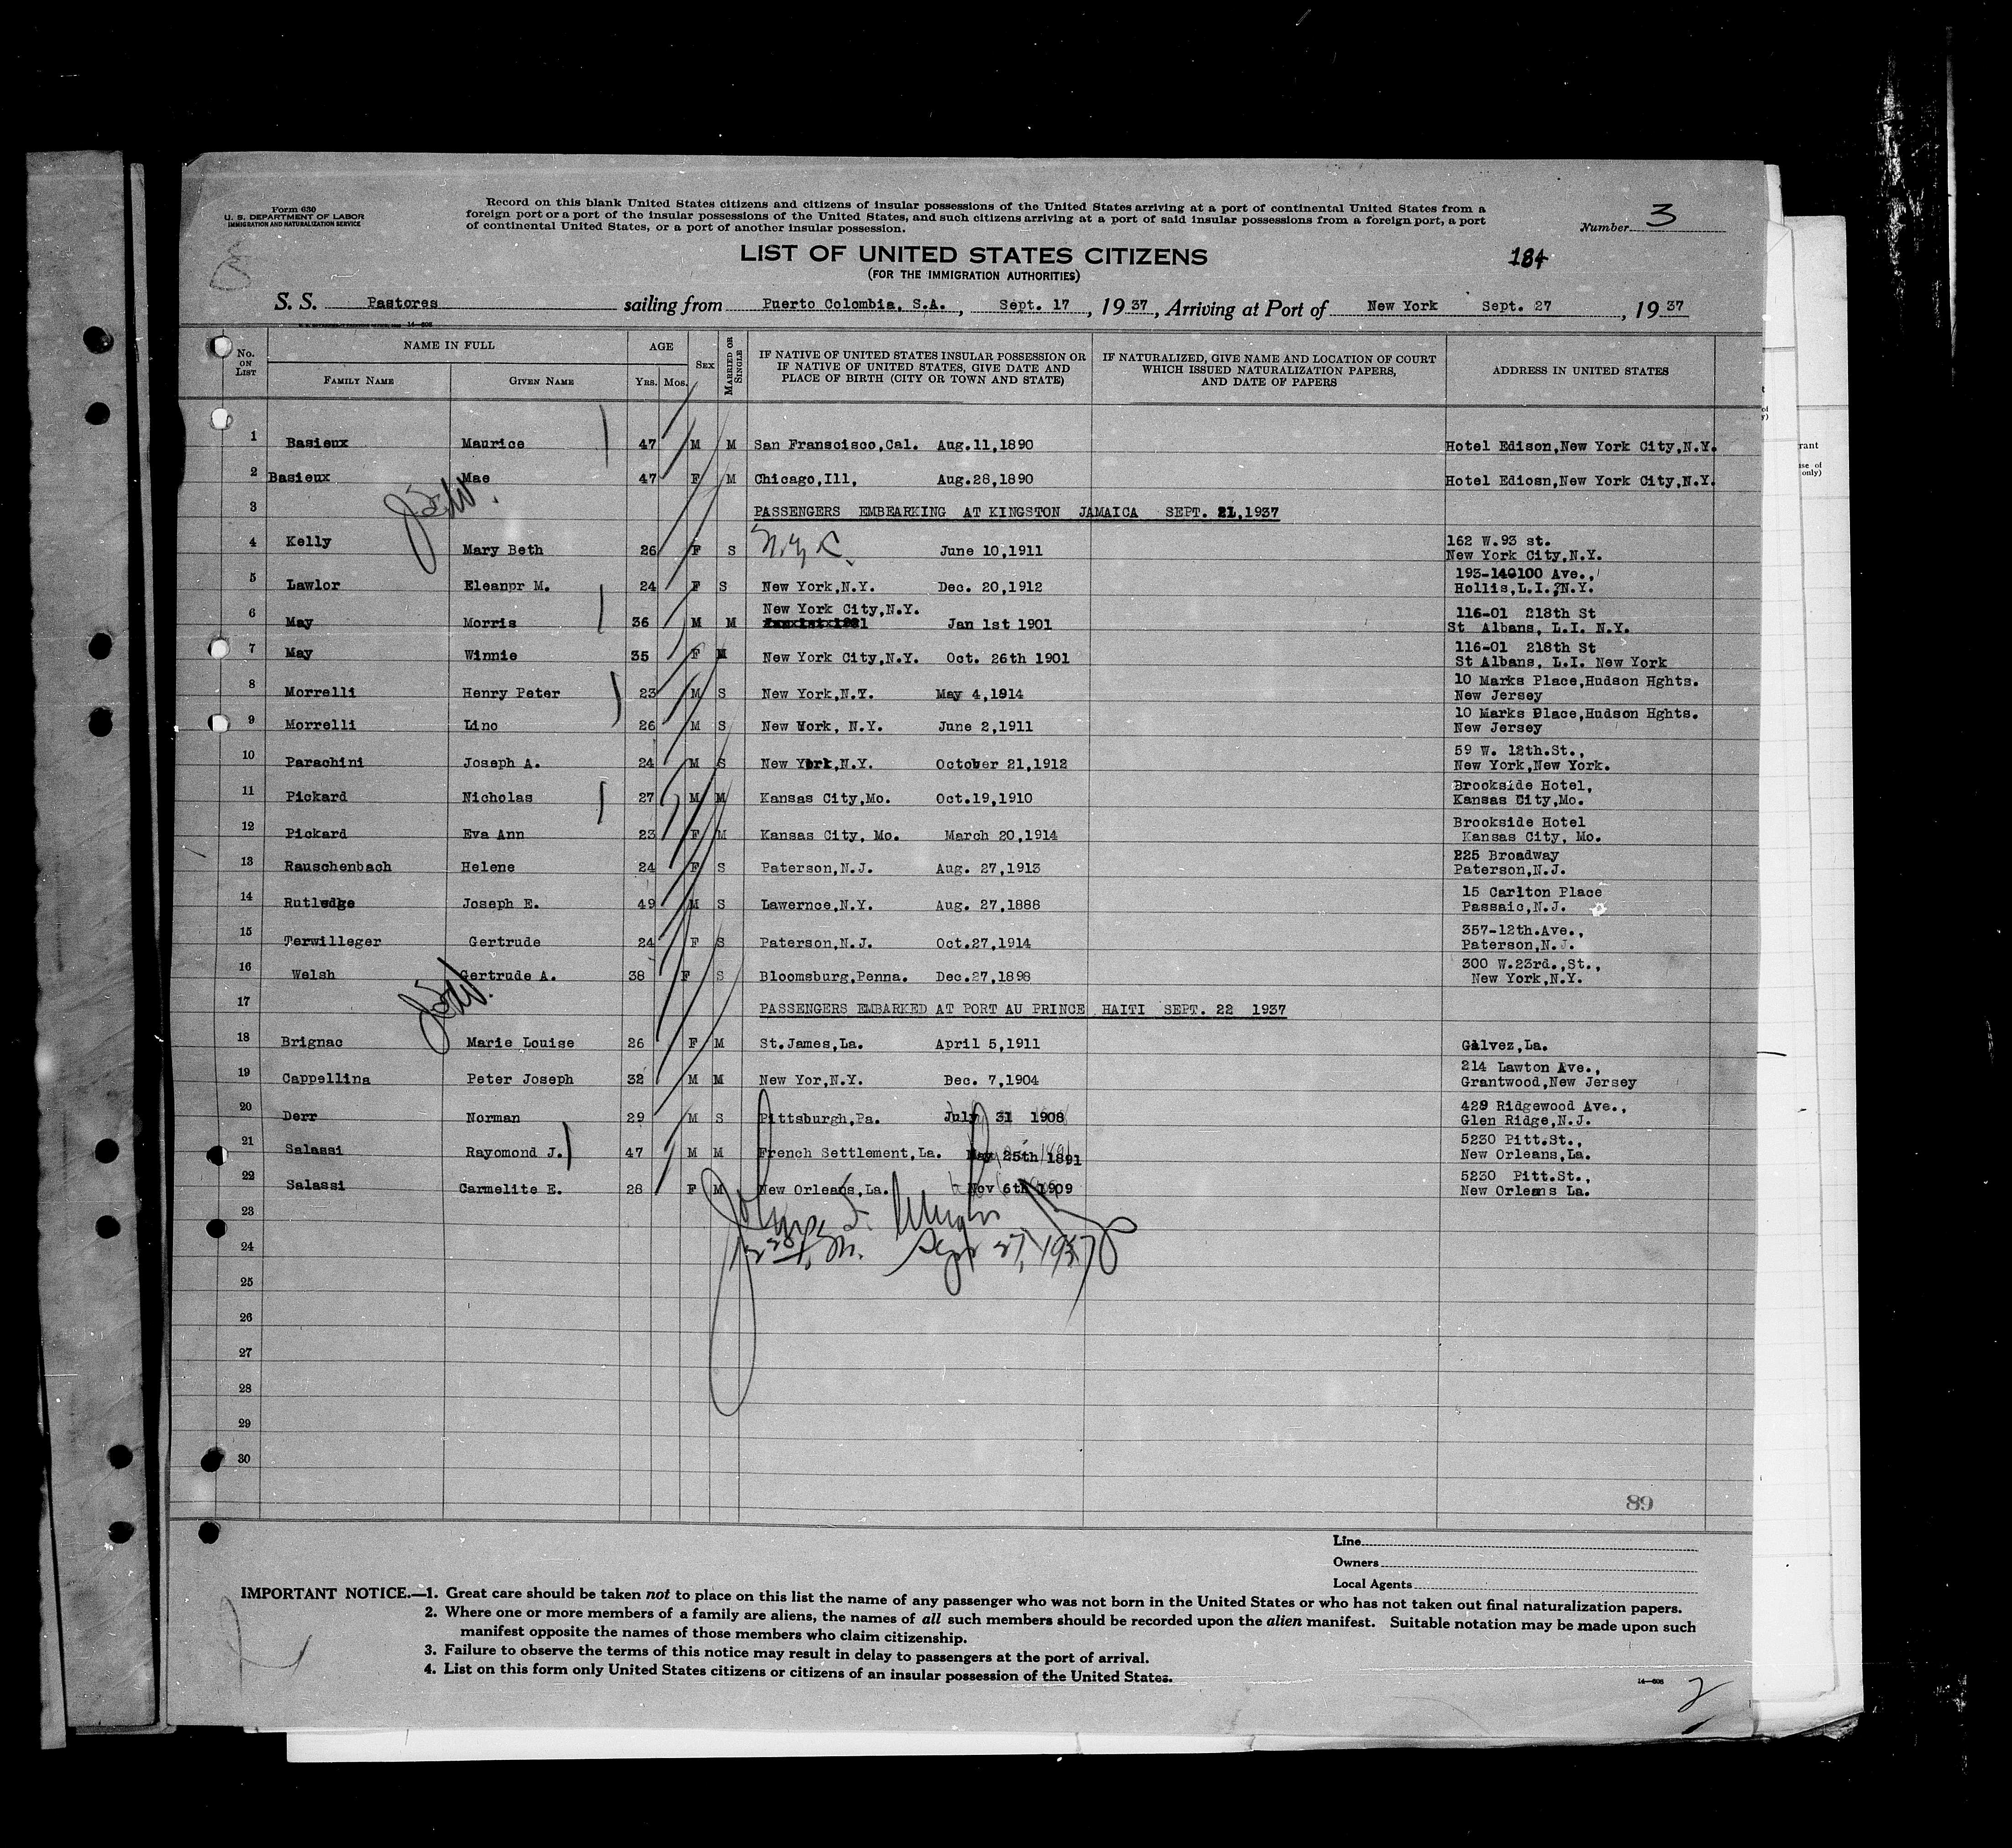 Form 630
U. S. DEPARTMENT OF LABOR
IMMIGRATION AND NATURALIZATION SERVICE
Record on this blank United States citizens and citizens of insular possessions of the United States arriving at a port of continental United States from a
foreign port or a port of the insular possessions of the United States, and such citizens arriving at a port of said insular possessions from a foreign port, a port
of continental United States, or a port of another insular possession.
Number 3
LIST OF UNITED STATES CITIZENS
(FOR THE IMMIGRATION AUTHORITIES)
184
S. S. Pastores sailing from Puerto Colombia, S.A., Sept. 17, 1937, Arriving at Port of New York Sept. 27, 1937
No. ON LIST
NAME IN FULL
FAMILY NAME GIVEN NAME
AGE
Yrs. Mos.
SEX
MARRIED OR SINGLE
IF NATIVE OF UNITED STATES INSULAR POSSESSION OR
IF NATIVE OF UNITED STATES, GIVE DATE AND
PLACE OF BIRTH (CITY OR TOWN AND STATE)
IF NATURALIZED, GIVE NAME AND LOCATION OF COURT
WHICH ISSUED NATURALIZATION PAPERS,
AND DATE OF PAPERS
ADDRESS IN UNITED STATES
1 Basieux Maurice 47 M M San Franscisco,Cal. Aug.11,1890 Hotel Edison,New York City,N.Y.
2 Basieux Mae 47 F M Chicago,Ill, Aug.28,1890 Hotel Ediosn,New York City,N.Y.
3 PASSENGERS EMBEARKING AT KINGSTON JAMAICA SEPT. 21,1937
4 Kelly Mary Beth 26 F S N.Y.C. June 10,1911 162 W.93 st.
New York City,N.Y.
5 Lawlor Eleanpr M. 24 F S New York,N.Y. Dec. 20,1912 193-140100 Ave.,
Hollis,L.I.?N.Y.
New York City,N.Y.
6 May Morris 36 M M Jan 1st 1901 116-01 218th St
St Albans, L.I. N.Y.
7 May Winnie 35 F M New York City,N.Y. Oct. 26th 1901 116-01 218th St
St Albans, L.I. New York
8 Morrelli Henry Peter 23 M S New York,N.Y. May 4,1914 10 Marks Place,Hudson Hghts.
New Jersey
9 Morrelli Lino 26 M S New York, N.Y. June 2,1911 10 Marks Place,Hudson Hghts.
New Jersey
10 Parachini Joseph A. 24 M S New York,N.Y. October 21,1912 59 W. 12th.St.,
New York,New York.
11 Pickard Nicholas 27 M M Kansas City,Mo. Oct.19,1910 Brookside Hotel,
Kansas City,Mo.
12 Pickard Eva Ann 23 F M Kansas City, Mo. March 20,1914 Brookside Hotel
Kansas City, Mo.
13 Rauschenbach Helene 24 F S Paterson,N.J. Aug. 27,1913 225 Broadway
Paterson,N.J.
14 Rutledge Joseph E. 49 M S Lawernce,N.Y. Aug. 27,1888 15 Carlton Place
Passaic,N.J.
15 Terwilleger Gertrude 24 F S Paterson,N.J. Oct.27,1914 357-12th.Ave.,
Paterson,N.J.
16 Welsh Gertrude A. 38 F S Bloomsburg,Penna. Dec.27,1898 300 W.23rd.,St.,
New York,N.Y.
17 PASSENGERS EMBARKED AT PORT AU PRINCE HAITI SEPT. 22 1937
18 Brignac Marie Louise 26 F M St.James,La. April 5,1911 Galvez,La.
19 Cappellina Peter Joseph 32 M M New Yor,N.Y. Dec. 7,1904 214 Lawton Ave.,
Grantwood,New Jersey
20 Derr Norman 29 M S Pittsburgh,Pa. July 31 1908 429 Ridgewood Ave.,
Glen Ridge,N.J.
21 Salassi Rayomond J. 47 M M French Settlement,La. May 25th 1891 5230 Pitt.St.,
New Orleans,La.
22 Salassi Carmelite E. 28 F M New Orleans,La. Nov 6th 1909 5230 Pitt.St.,
New Orleans La.
23
24 Sept 27, 1937
25
26
27
28
29
30
89
Line
Owners
Local Agents
IMPORTANT NOTICE.—1. Great care should be taken not to place on this list the name of any passenger who was not born in the United States or who has not taken out final naturalization papers.
2. Where one or more members of a family are aliens, the names of all such members should be recorded upon the alien manifest. Suitable notation may be made upon such
manifest opposite the names of those members who claim citizenship.
3. Failure to observe the terms of this notice may result in delay to passengers at the port of arrival.
4. List on this form only United States citizens or citizens of an insular possession of the United States.
14—606
2